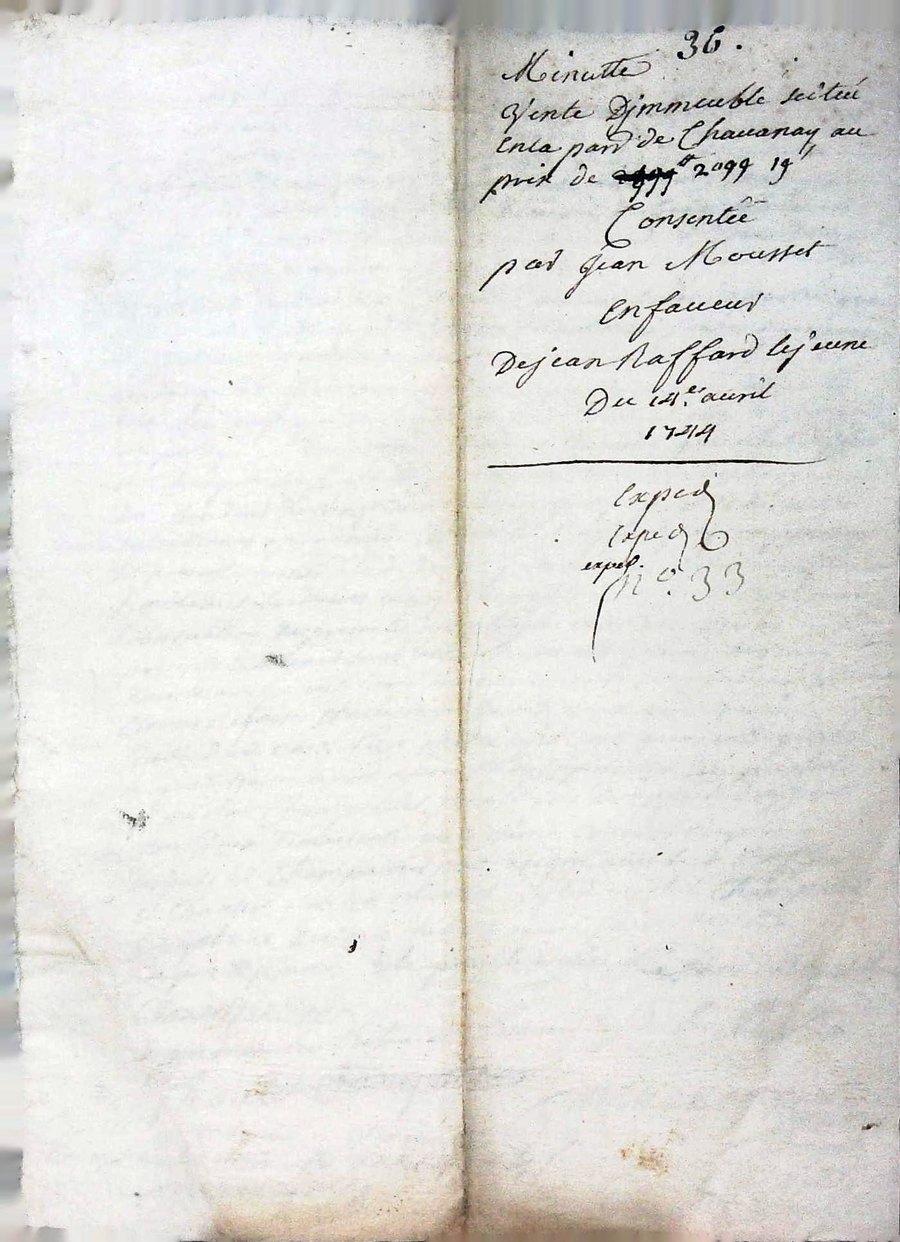 36.
Minutte
Vente Djmmeuble scitué
en la parr de Chauanay au
prix de 2099 19
Consentie
par Jean Mousset
En faueur
De jean Raffard le jeune
Du 14.e auril
1744
Exped
Exped
exped.
n.o 33